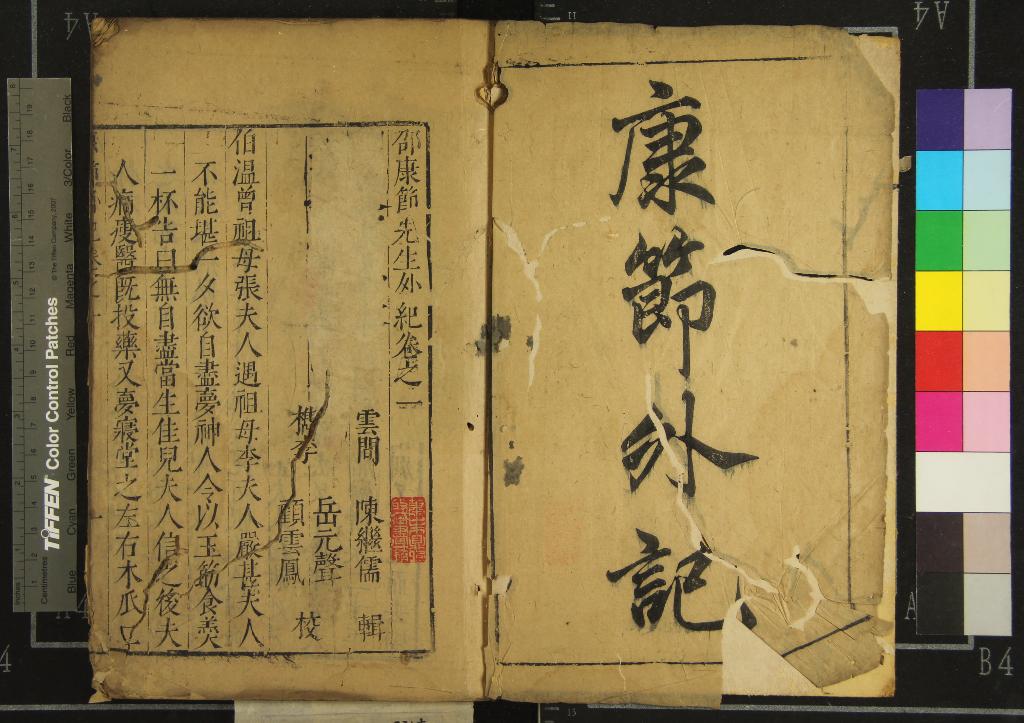 康節外記
邵康節先生外紀卷之一
雲間 陳繼儒 輯
岳元聲
檇李 顧雲鳳 校
伯溫曾祖母張夫人遇祖母李夫人嚴甚李夫人
不能堪一夕欲自盡夢神人令以玉筯食羮
一杯告曰無自盡當生佳兒夫人信之後夫
人病瘦醫既投藥又夢寢堂之左右木瓜二
TIFFEN Color Control Patches
© The Tiffen Company, 2007
Blue Cyan Green Yellow Red Magenta White 3/Color Black
Inches
Centimetres
A4
B4